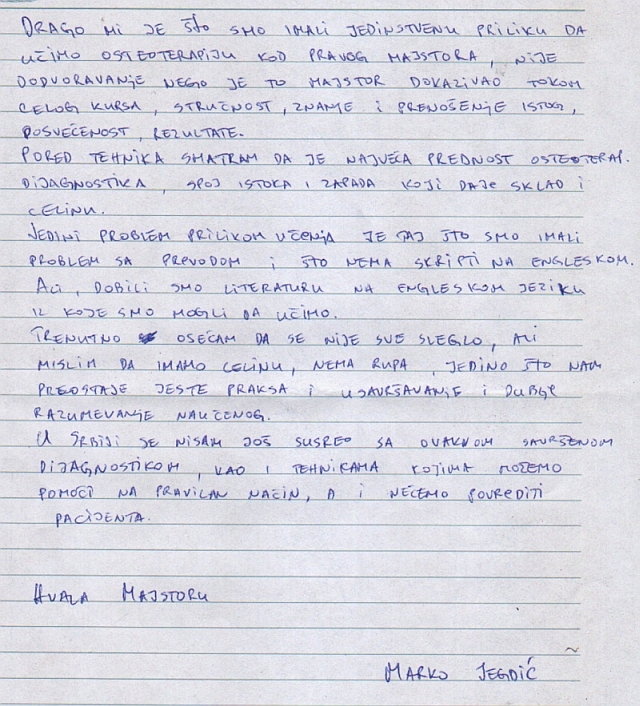 DRAGO MI JE ŠTO SMO IMALI JEDINSTVENU PRILIKU DA
UČIMO OSTEOTERAPIJU KOD PRAVOG MAJSTORA, NIJE
DODVORAVANJE NEGO JE TO MAJSTOR DOKAZIVAO TOKOM
CELOG KURSA, STRUČNOST, ZNANJE I PRENOŠENJE ISTOG,
POSVEĆENOST, REZULTATE.
PORED TEHNIKA SMATRAM DA JE NAJVEĆA PREDNOST OSTEOTERAP.
DIJAGNOSTIKA, SPOJ ISTOKA I ZAPADA KOJI DAJE SKLAD I
CELINU.
JEDINI PROBLEM PRILIKOM UČENJA JE TAJ ŠTO SMO IMALI
PROBLEM SA PREVODOM I ŠTO NEMA SKRIPTI NA ENGLESKOM.
ALI, DOBILI SMO LITERATURU NA ENGLESKOM JEZIKU
IZ KOJE SMO MOGLI DA UČIMO.
TRENUTNO OSEĆAM DA SE NIJE SVE SLEGLO, ALI
MISLIM DA IMAMO CELINU, NEMA RUPA, JEDINO ŠTO NAM
PREOSTAJE JESTE PRAKSA I USAVRŠAVANJE I DUBLJE
RAZUMEVANJE NAUČENOG.
U SRBIJI SE NISAM JOŠ SUSREO SA OVAKVOM SAVRŠENOM
DIJAGNOSTIKOM, KAO I TEHNIKAMA KOJIMA MOŽEMO
POMOĆI NA PRAVILAN NAČIN, A I NEĆEMO POVREDITI
PACIJENTA.
HVALA MAJSTORU
MARKO JEGDIĆ